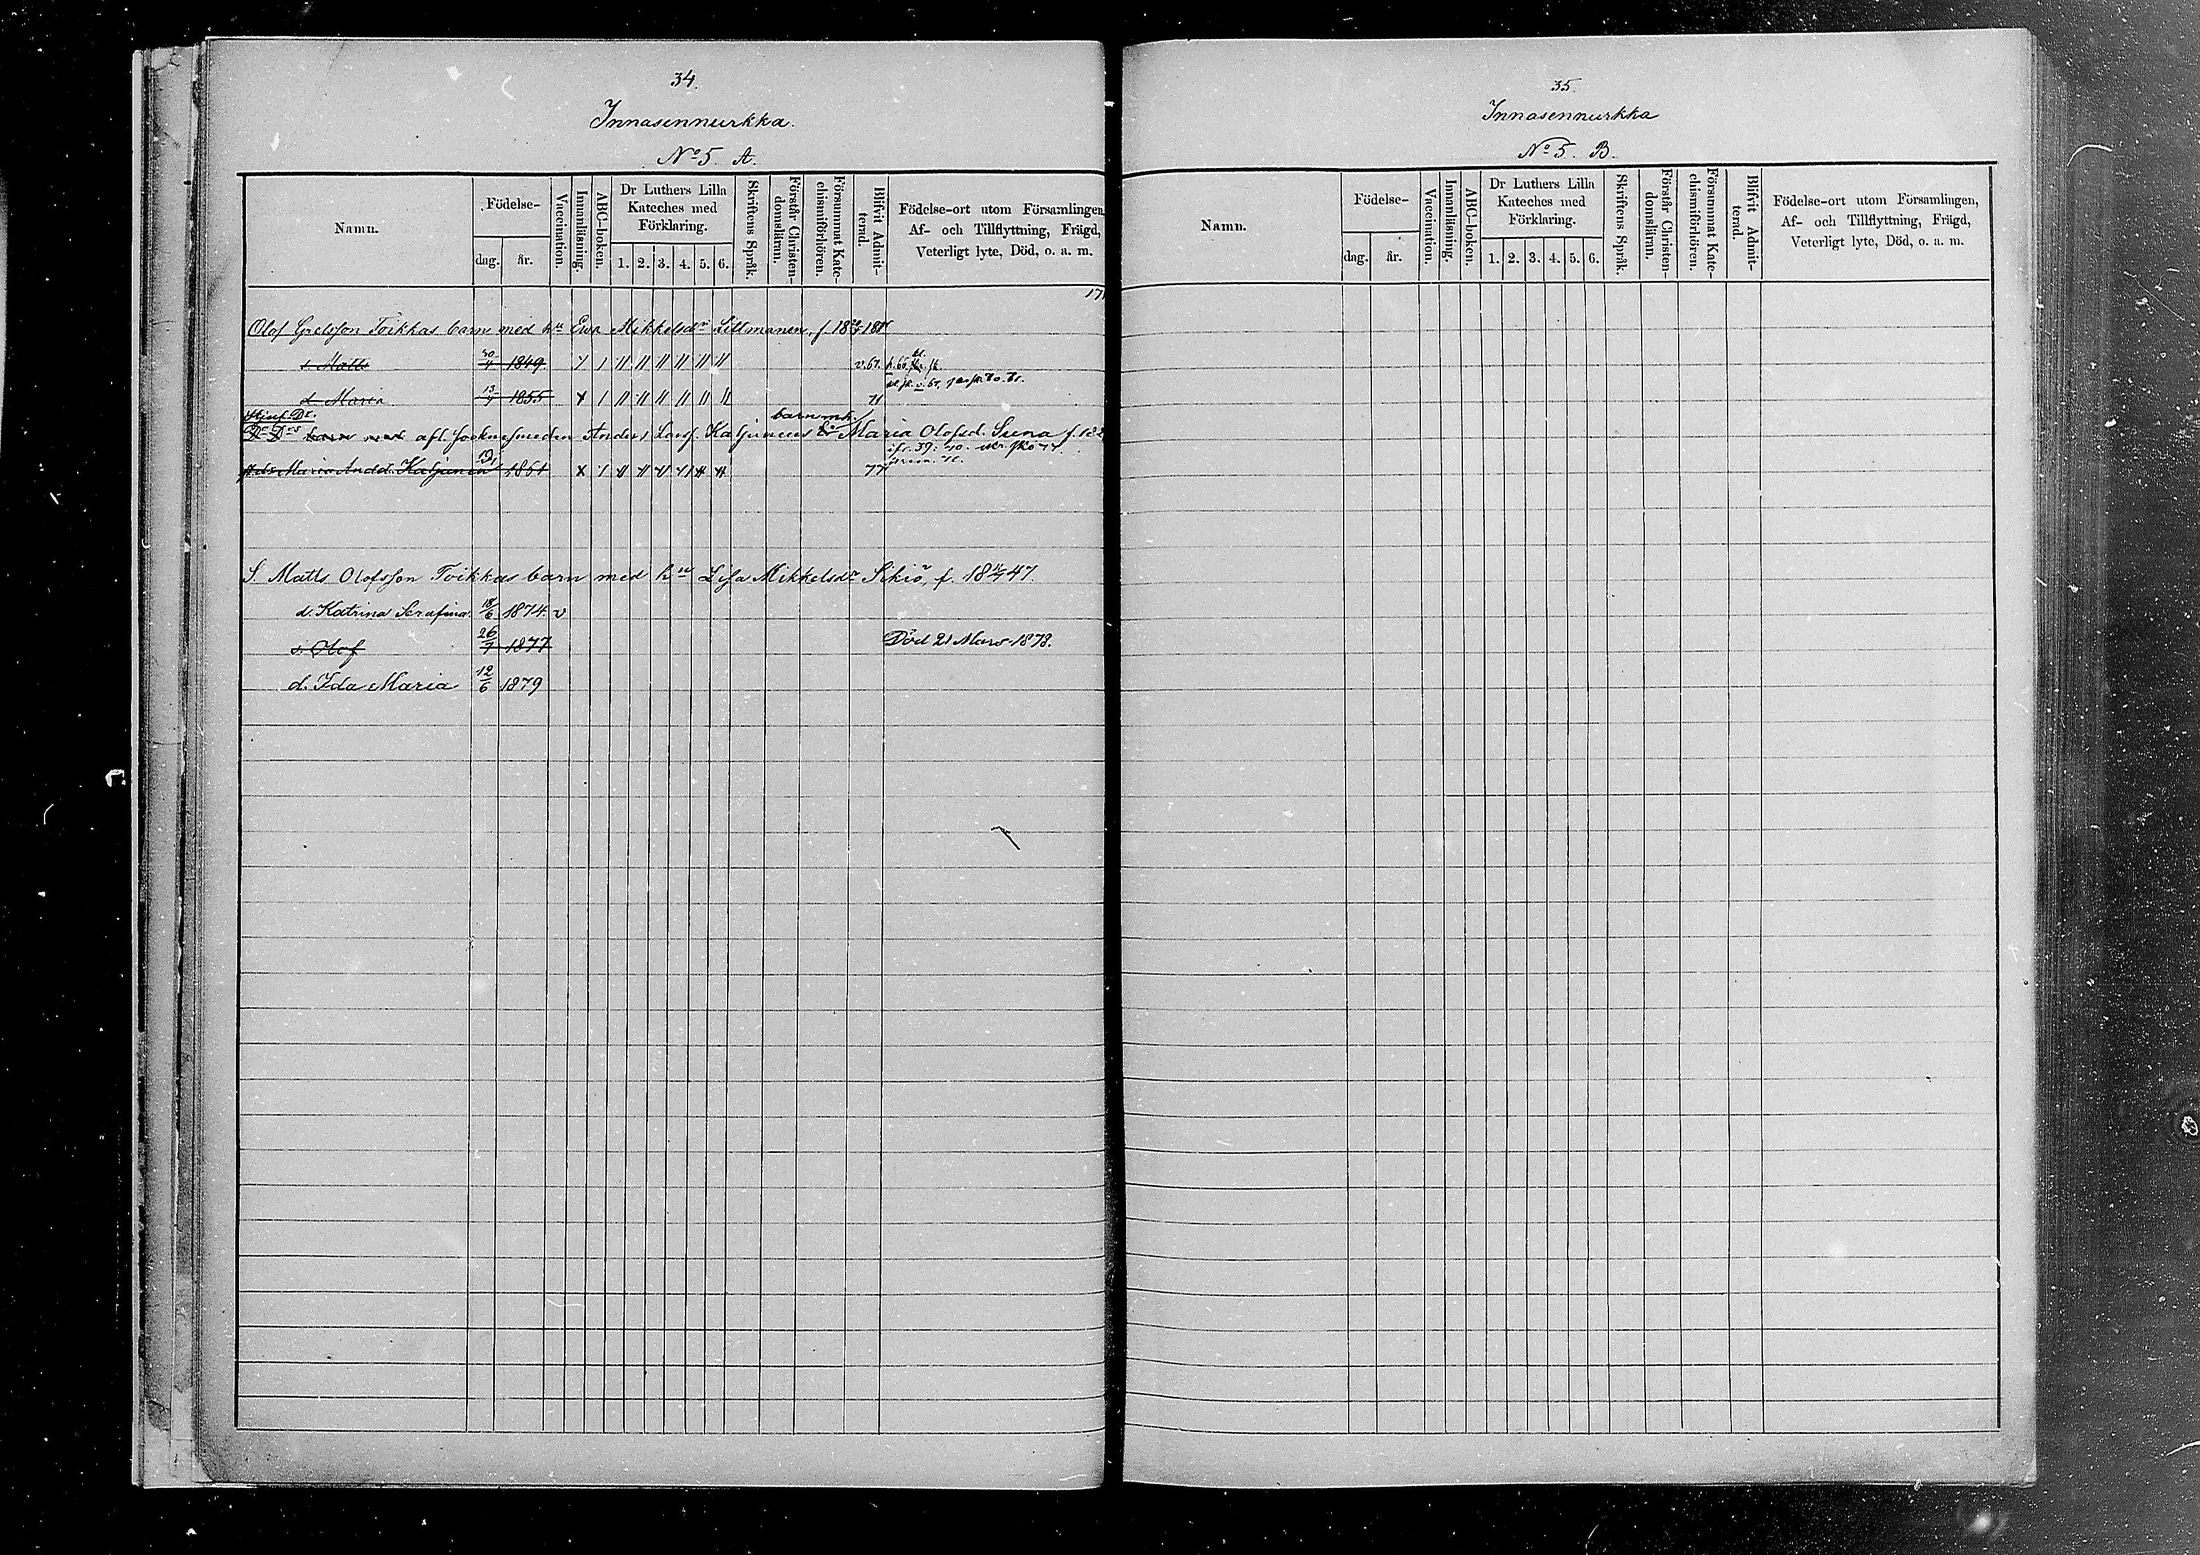 34.
Innasennurkka.
No 5. A.
Namn.
Födelse-
dag.
år.
Vaccination.
Innanläsning.
ABC-boken.
Dr Luthers Lilla
Kateches med
Förklaring.
1. 2. 3. 4. 5. 6.
Skriftens Språk.
Förstår Christen-
domsläran.
Försummat Kate-
chismiförhören.
Blifvit Admit-
terad.
Födelse-ort utom Församlingen,
Af- och Tillflyttning, Frägd,
Veterligt lyte, Död, o. a. m.
Olof Toikkas barn med hu Ewa Mikkelsdr
s. Matts 30 1849 v. 67.
d. Maria 13 1855 71
barn med afl. Anders Maria Olofsd.
Maria Andd. 19 1861 77
S. Matts Olofsson Toikkas barn med hu Lisa Mikkelsdr Sikiö, f. 18 47
d. Katrina Serafina. 18/6 1874. v
s. Olof 26 1877 Död 21 Mars 1878.
d. Ida Maria 12/6 1879
35.
Innasennurkka
No 5. B.
Namn.
Födelse-
dag.
år.
Vaccination.
Innanläsning.
ABC-boken.
Dr Luthers Lilla
Kateches med
Förklaring.
1. 2. 3. 4. 5. 6.
Skriftens Språk.
Förstår Christen-
domsläran.
Försummat Kate-
chismiförhören.
Blifvit Admit-
terad.
Födelse-ort utom Församlingen,
Af- och Tillflyttning, Frägd,
Veterligt lyte, Död, o. a. m.